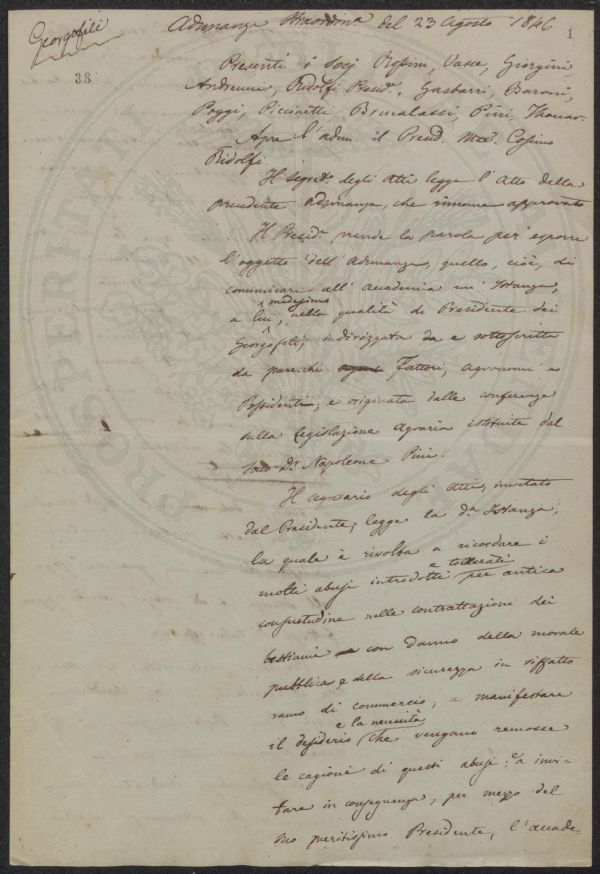 Georgofili
Adunanza straordin.a del 23 Agosto 1846
1
38
Presenti i Socj Rosini, Vasse, Giorgini,
Andreucci, Ridolfi Presid.e, Gasbarri, Baroni,
Poggi, Piccinetti, Brucalassi, Pini, Thouar.
Apre l'adun. il Presid. Mar. Cosimo
Ridolfi
Il segret.o degli Atti legge l'Atto della
precedente Adunanza, che rimane approvato
Il Presid.e prende la parola per esporre
l'oggetto dell'Adunanza, quello, cioè, di
comunicare all'Accademia un'Istanza,
a lui medesimo, nella qualità di Presidente dei
Georgofili, indirizzata da e sottoscritta
da parecchi Fattori, Agronomi e
Possidenti, e originata dalle conferenze
sulla Legislazione Agraria istituite dal
Socio D.r Napoleone Pini.
Il segretario degli Atti, invitato
dal Presidente, legge la d.a Istanza,
la quale è rivolta a ricordare i
molti abusi introdotti e tollerati per antica
consuetudine nelle contrattazioni dei
bestiami con danno della morale
pubblica e della sicurezza in siffatto
ramo di commercio; a manifestare
il desiderio e la necessità che vengano remosse
le cagioni di questi abusi; e a invi-
tare in conseguenza, per mezzo del
suo meritissimo Presidente, l'accade-